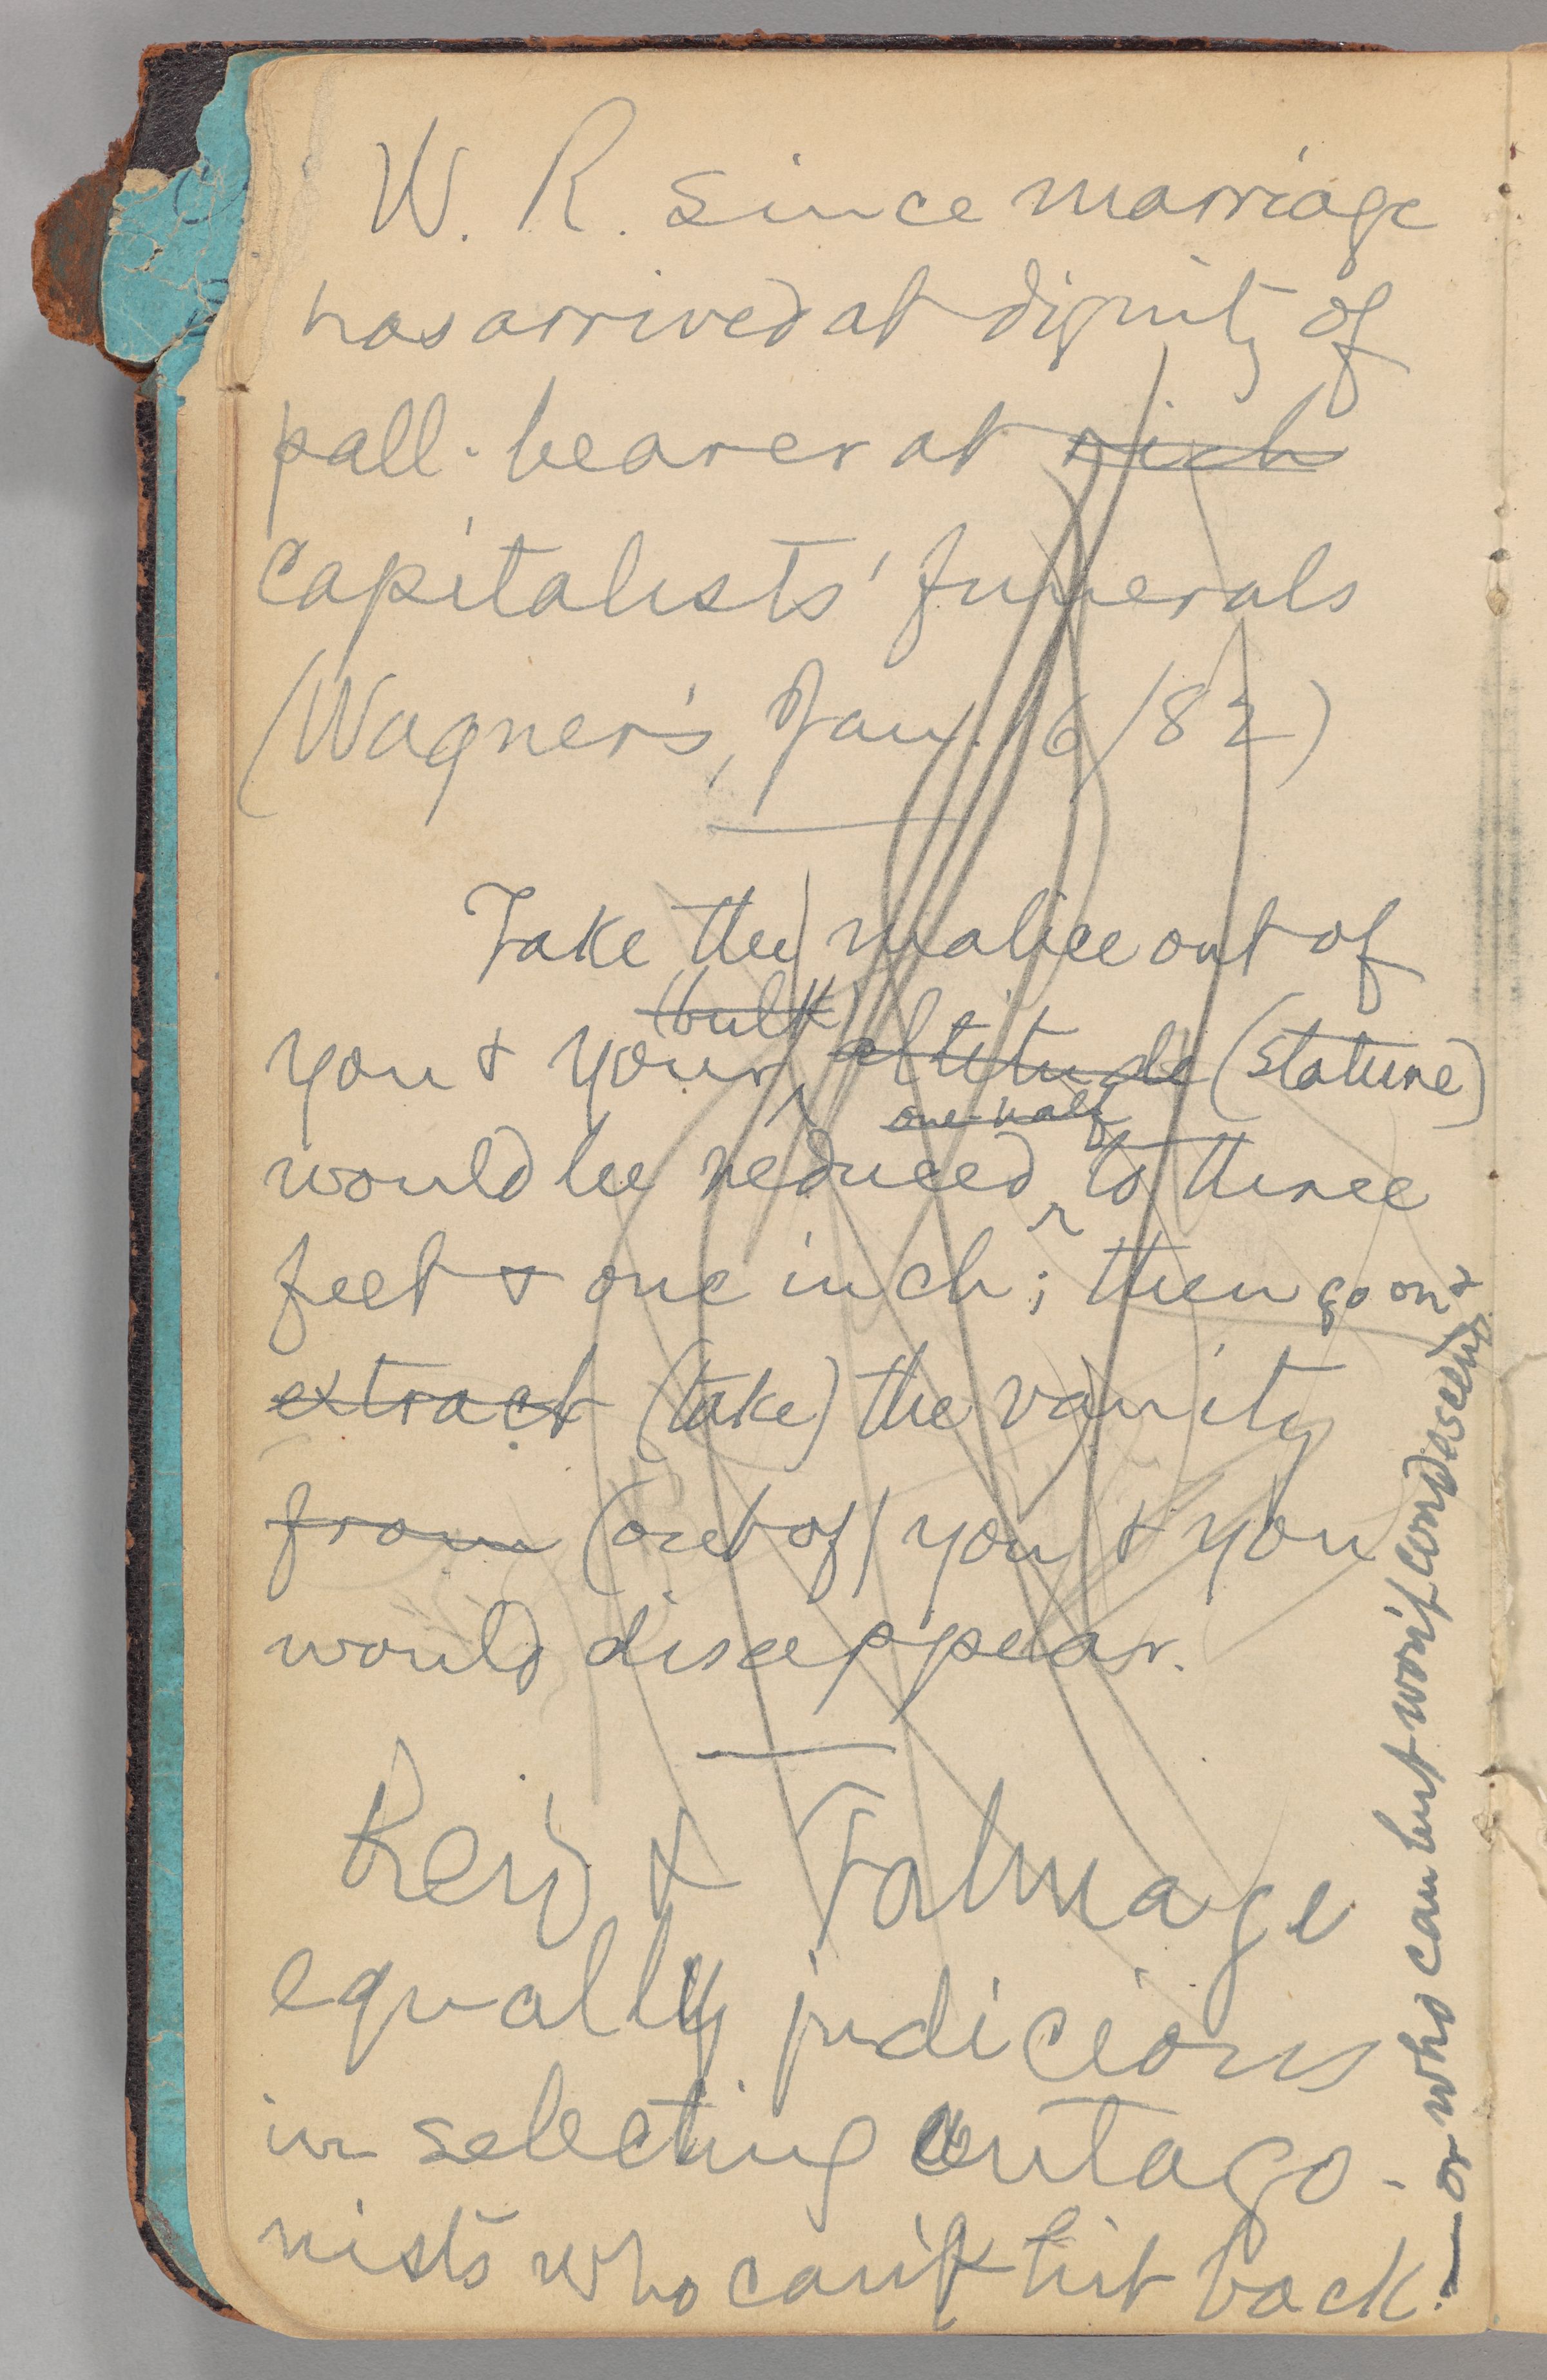 W. R. since marriage
has arrived at dignity of
pall-bearer at rich
capitalists' funerals
(Wagner's, Jan. 16/82)
Take the malice out of
(bulk)
you & your altitude (stature)
one-half
would be reduced to three
feet & one inch; then go on &
extract (take) the vanity
from (out of) you & you
would disappear.
Reid & Talmage
equally judicious
in selecting antago-
nists who can't hit back.
— or who can but won't condescend.